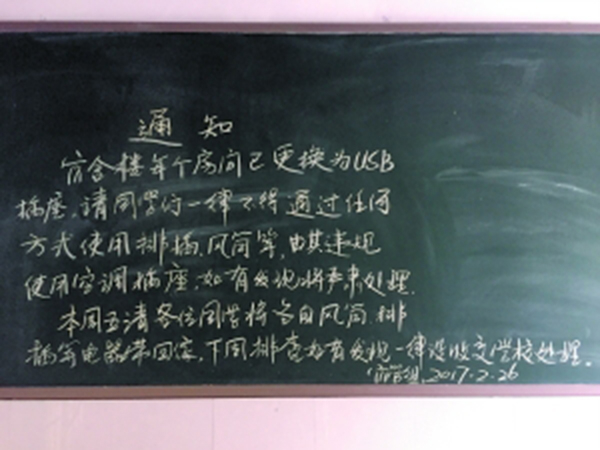 通知
宿舍楼每个房间已更换为USB
插座,请同学们一律不得通过任何
方式使用排插、风筒等,由其违规
使用空调插座,如有发现将严肃处理.
本周五请各位同学将各自风筒、排
插等电器带回家,下周排查如有发现一律没收交学校处理.
宿管组 2017.2.26